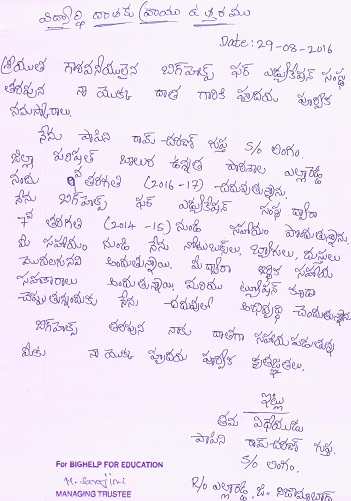 విద్యార్థి దాతకు వ్రాయు ఉత్తరము
Date: 29-08-2016
శ్రీయుత గౌరవనీయులైన బిగ్‌హెల్ప్ ఫర్ ఎడ్యుకేషన్ సంస్థ
తరపున నా యొక్క దాత గారికి హృదయ పూర్వక
నమస్కారాలు.
నేను పాపిని రామ్-చరణ్ గుప్త S/o లింగం.
జిల్లా పరిషత్ బాలుర ఉన్నత పాఠశాల ఎల్లారెడ్డి
నందు 9వ తరగతి (2016-17) చదువుతున్నాను.
నేను బిగ్‌హెల్ప్ ఫర్ ఎడ్యుకేషన్ సంస్థ ద్వారా
7వ తరగతి (2014-15) నుండి సహాయం పొందుతున్నాను.
మీ సహాయం నుండి నేను నోటుబుక్స్, బ్యాగులు, దుస్తులు
మొదలగునవి అందుతున్నాయి. మీ ద్వారా ఆర్థిక సహాయ
సహకారాలు అందుతున్నాయి మరియు ట్యూషన్ కూడా
చెప్పుతున్నందుకు నేను చదువులో అభివృద్ధి చెందుతున్నాను.
బిగ్‌హెల్ప్ తరపున నాకు దాతగా సహాయపడుతున్న
మీకు నా యొక్క హృదయ పూర్వక కృతజ్ఞతలు.
ఇట్లు
తమ విధేయుడు
పాపిని రామ్-చరణ్ గుప్త.
S/o లింగం.
R/o ఎల్లారెడ్డి, జి. నిజామాబాద్
For BIGHELP FOR EDUCATION
MANAGING TRUSTEE